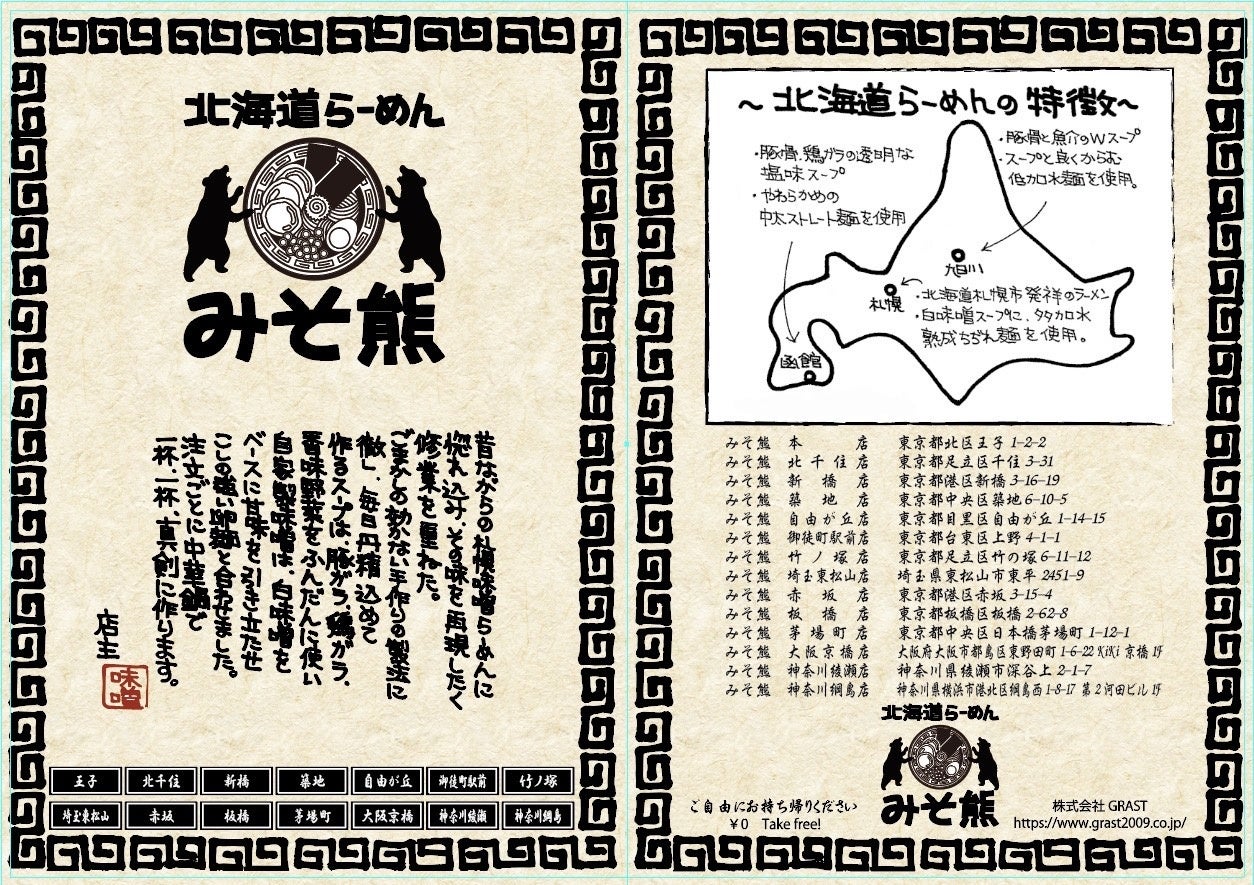 北海道らーめん
みそ熊
昔ながらの札幌味噌らーめんに
惚れ込み、その味を再現したく
修業を重ねた。
ごまかしの効かない手作りの製法に
徹し、毎日丹精込めて
作るスープは、豚ガラ、鶏ガラ、
香味野菜をふんだんに使い
自家製味噌は、白味噌を
ベースに甘味を引き立たせ
こしの強い卵麺と合わせました。
注文ごとに中華鍋で
一杯、一杯、真剣に作ります。
店主
味噌
王子 北千住 新橋 築地 自由が丘 御徒町駅前 竹ノ塚
埼玉東松山 赤坂 板橋 茅場町 大阪京橋 神奈川綾瀬 神奈川綱島
～北海道らーめんの特徴～
・豚骨、鶏ガラの透明な
塩味スープ
・やわらかめの
中太ストレート麺を使用
・豚骨と魚介のWスープ
・スープと良くからむ
低カロ水麺を使用。
旭川
札幌
・北海道札幌市発祥のラーメン
・白味噌スープに、多カロ水
熟成ちぢれ麺を使用。
函館
みそ熊 本店 東京都北区王子 1-2-2
みそ熊 北千住店 東京都足立区千住 3-31
みそ熊 新橋店 東京都港区新橋 3-16-19
みそ熊 築地店 東京都中央区築地 6-10-5
みそ熊 自由が丘店 東京都目黒区自由が丘 1-14-15
みそ熊 御徒町駅前店 東京都台東区上野 4-1-1
みそ熊 竹ノ塚店 東京都足立区竹の塚 6-11-12
みそ熊 埼玉東松山店 埼玉県東松山市東平 2451-9
みそ熊 赤坂店 東京都港区赤坂 3-15-4
みそ熊 板橋店 東京都板橋区板橋 2-62-8
みそ熊 茅場町店 東京都中央区日本橋茅場町 1-12-1
みそ熊 大阪京橋店 大阪府大阪市都島区東野田町 1-6-22 KiKi 京橋 1F
みそ熊 神奈川綾瀬店 神奈川県綾瀬市深谷上 2-1-7
みそ熊 神奈川綱島店 神奈川県横浜市港北区綱島西 1-8-17 第2河田ビル 1F
北海道らーめん
みそ熊
ご自由にお持ち帰りください
￥0 Take free!
株式会社 GRAST
https://www.grast2009.co.jp/